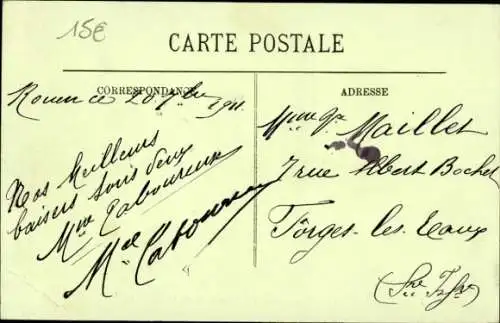 15€
CARTE POSTALE
CORRESPONDANCE
ADRESSE
Rouen ce 20 7bre 1911.
Nos meilleurs
baisers tous deux
Mme Laboureux
Mel Laboureux
Mme Maillet
7 rue Albert Bochet
Forges-les-Eaux
(Sre Infre)